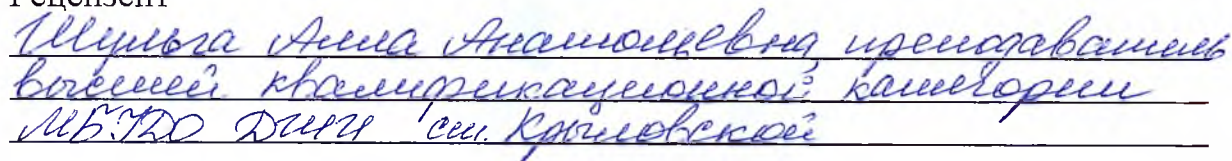 Рецензент
Шульга Алла Анатольевна, преподаватель
высшей квалификационной категории
МБУДО ДШИ ст. Крыловской